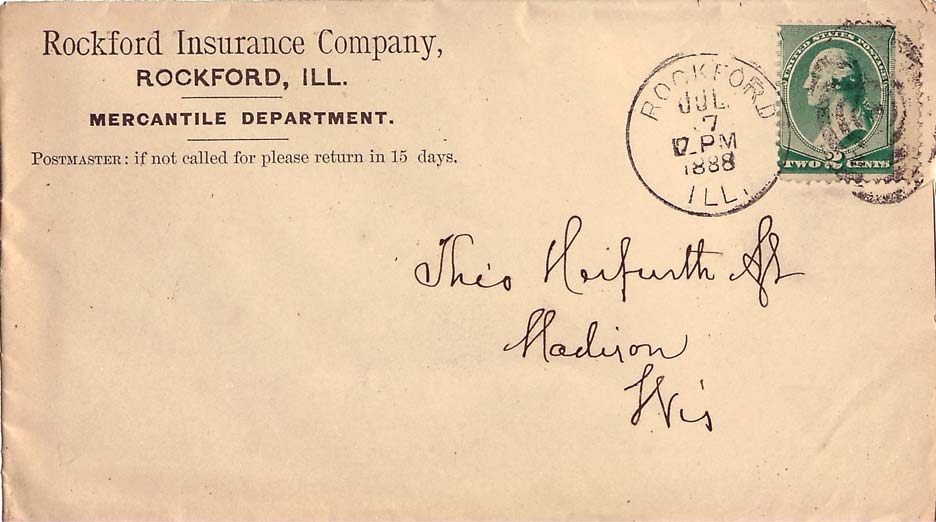 Rockford Insurance Company,
ROCKFORD, ILL.
MERCANTILE DEPARTMENT.
POSTMASTER: if not called for please return in 15 days.
ROCKFORD
JUL
7
PM
1888
ILL.
UNITED STATES POSTAGE
TWO 2 CENTS
Theo Herfurth
Madison
Wis